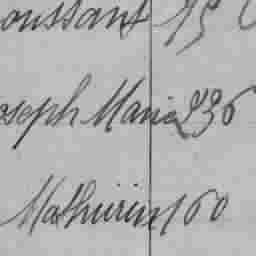 oussant 75
oseph Marie 236
Mathurin 160